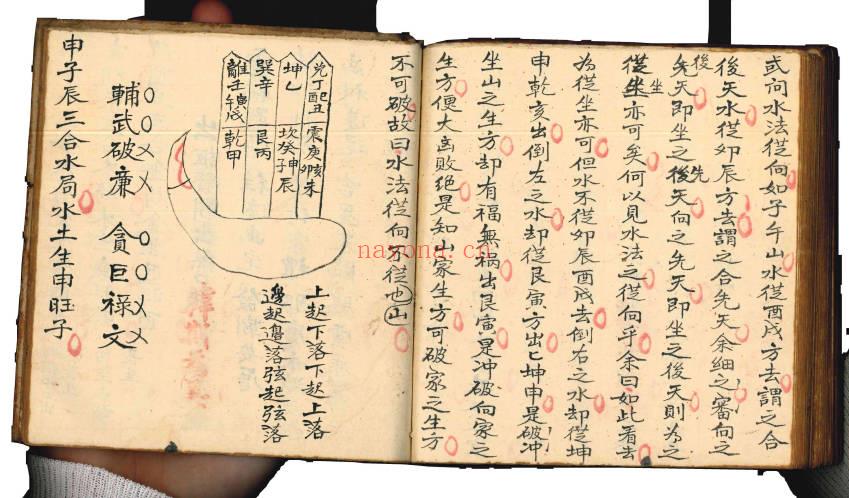 或问水法從向如子午山水從酉戌方去謂之合
後天水從卯辰方去謂之合先天余細之審向之
先天即坐之後天向之先天即坐之後天則為之
後 先
從坐亦可矣何以見水法之從向乎余曰如此看去
坐
為從坐亦可但水不從卯辰酉戌去倒右之水却從坤
申乾亥出倒左之水却從艮寅方出乙坤申是破冲
坐山之生方却有福無禍出艮寅是冲破向家之
生方便大凶敗絕是知山家生方可破家之生方
不可破故曰水法從向不從也山
兌丁配丑 震庚卿亥未
坤乙 坎癸子申辰
巽辛 艮丙
離壬戌 乾甲
上起下落下起上落
邊起邊落弦起弦落
輔武破廉 貪巨祿文
申子辰三合水局水土生申旺子
nayona.cn